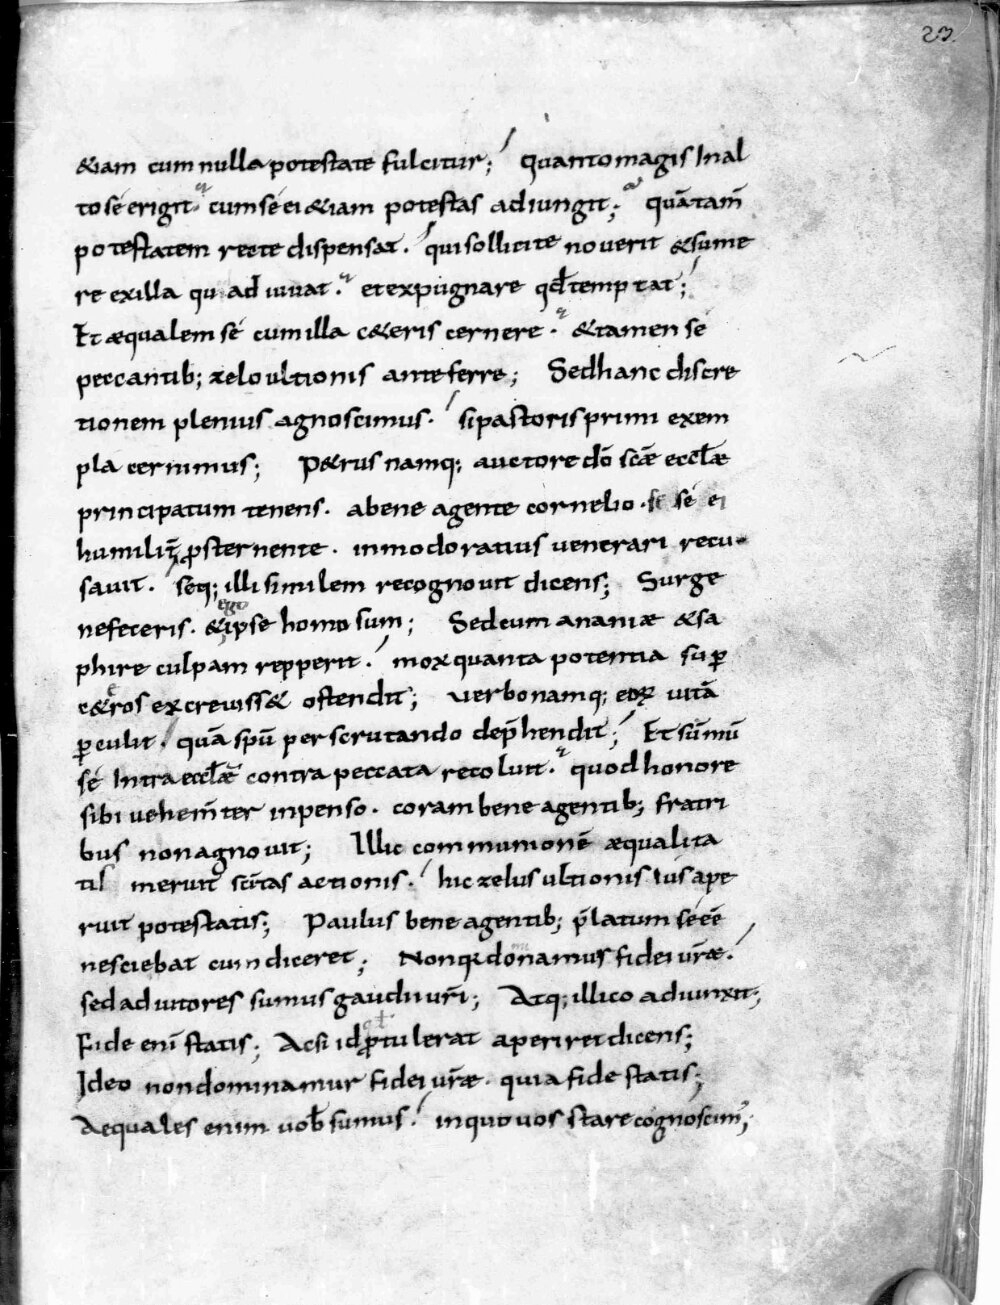 23.
&iam cum nulla potestate fulcitur; quanto magis In al
to sé erigit. cum se ei &iam potestas adiungit; quā tam̄
potestatem recte dispensat. qui sollicite noverit & sume
re ex illa qu adiuvat. et expugnare qđ temptat;
Et æqualem sé cum illa c&eris cernere. & tamen se
peccantib; zelo ultionis anteferre; Sed hanc discre
tionem plenius agnoscimus. si pastoris primi exem
pla cernimus; P&rus namq; auctore dō scǣ eccłæ
principatum tenens. a bene agente cornelio. se sé ei
humilit̄ ꝓsternente. inmodoratius venerari recu
savit. seq; illi similem recognovit dicens; Surge
ne feceris. & ego ipse homo sum; Sed cum ananiæ & sa
phire culpam repperit. mox quanta potentia sup̄
c&eros excreviss& ostendit; verbo namq; eoꝝ vitā
ꝑculit. quā spū perscrutando dep̄hendit; Et sūmū
sé Intra eccłǣ contra peccata recoluit. quod honore
sibi vehem̄ter inpenso. coram bene agentib; fratri
bus non agnovit; Illic communionē æqualita
tis meruit sc̄tas actionis. hic zelus ultionis ius ape
ruit potestatis; Paulus bene agentib; p̄latum se eē
nesciebat cum diceret; Non qꝛ domīnamus fidei vr̄æ.
sed adiutores sumus gaudii vr̄i; Atq; illico adiunxit;
Fide enī statis; Ac si id ꝓtulerat aperiret dicens;
Ideo non dominamur fidei vr̄æ. quia fide statis;
Aequales enim vob̄ sumus. in quo vos stare cognoscim᾽;